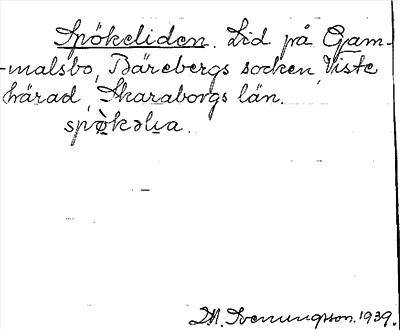 Spökeliden. Lid på Gam-
-malsbo, Bärebergs socken, Viste
härad, Skaraborgs län.
spö̀kəlıa.
M. Svenungsson. 1939.